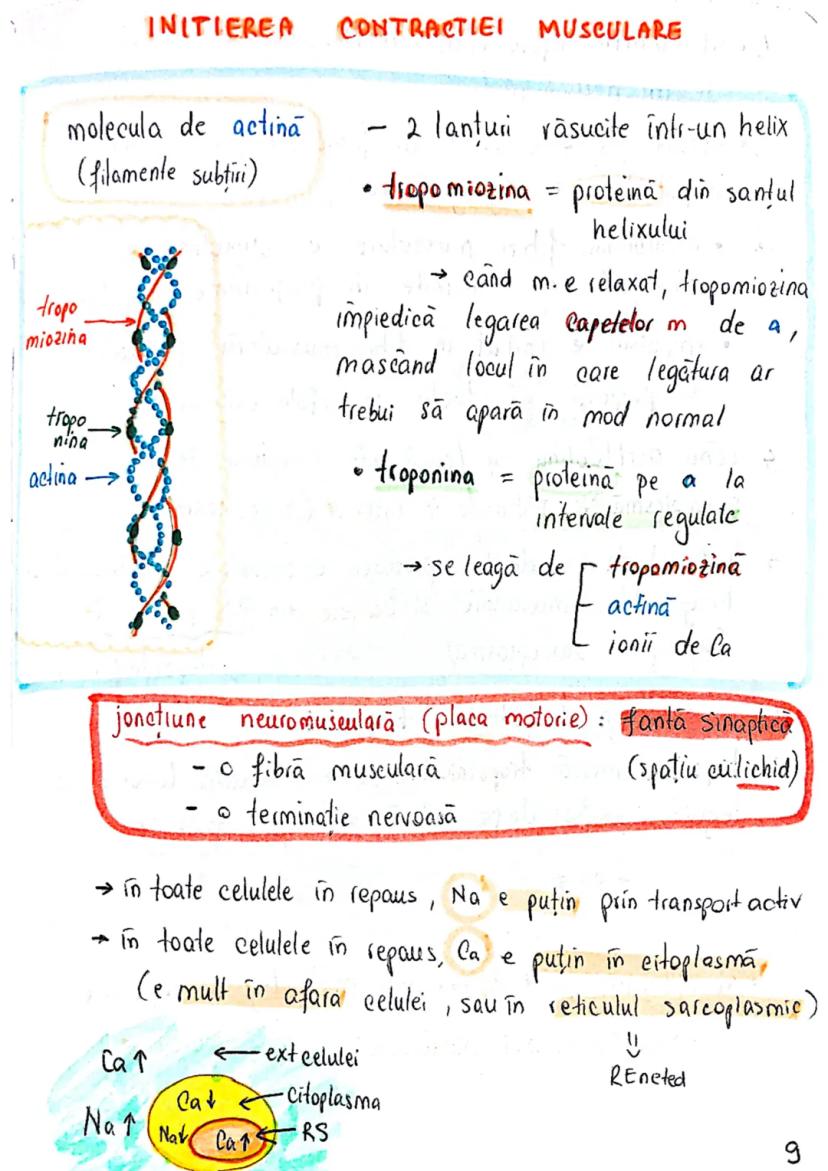 INITIEREA CONTRACTIEI MUSCULARE
molecula de actină
(filamente subțiri)
- 2 lanțuri răsucite într-un helix
• tropomiozina = proteină din santul
helixului
→ când m. e relaxat, tropomiozina
împiedică legarea capetelor m de a,
mascând locul în care legătura ar
trebui să apară în mod normal
tropo
miozina
tropo
nina
actina
• troponina = proteină pe a la
intervale regulate
→ se leagă de tropomiozină
actină
ionii de Ca
joncțiune neuromusculară (placa motorie) : fantă sinaptică
- o fibră musculară (spațiu cu lichid)
- o terminație nervoasă
→ în toate celulele în repaus, Na e puțin prin transport activ
→ în toate celulele în repaus, Ca e puțin în citoplasmă,
(e mult în afara celulei, sau în reticulul sarcoplasmic)
REneted
Ca↑ ← ext celulei
Ca↓ ← citoplasma
Na↑ Na↓ Ca↑ ← RS
9